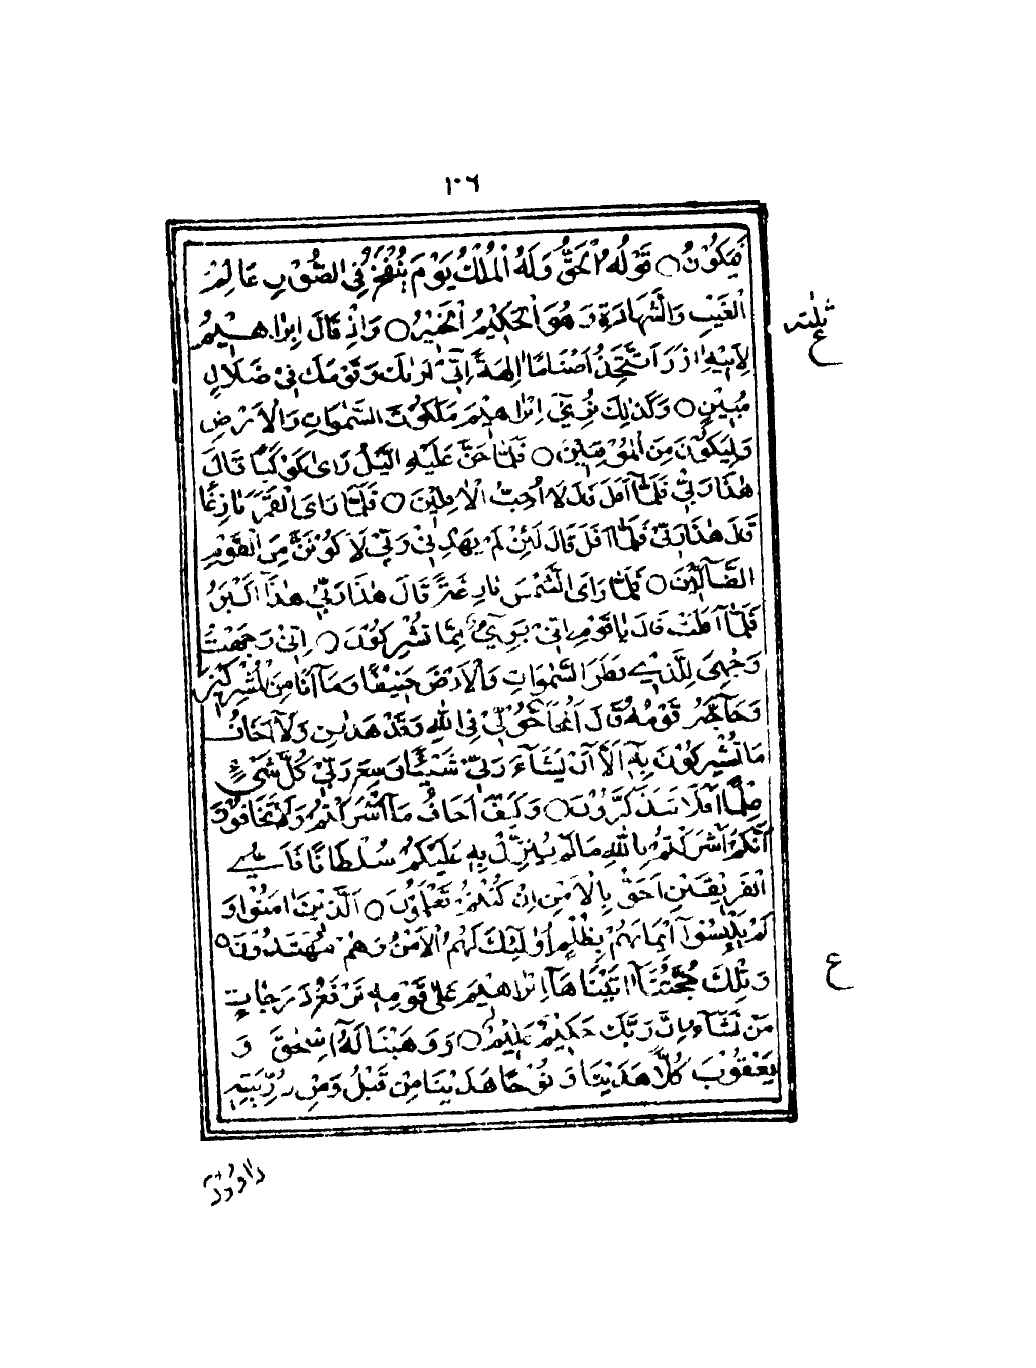 ١٠٦
فَيَكُوْنُ ○ قَوْلُهُ الْحَقُّ وَلَهُ الْمُلْكُ يَوْمَ يُنْفَخُ فِي الصُّوْرِ عَالِمُ
الْغَيْبِ وَالشَّهَادَةِ وَهُوَ الْحَكِيْمُ الْخَبِيْرُ ○ وَاِذْ قَالَ اِبْرَاهِيْمُ
لِاَبِيْهِ اٰزَرَ اَتَتَّخِذُ اَصْنَامًا اٰلِهَةً اِنِّيْٓ اَرٰىكَ وَقَوْمَكَ فِيْ ضَلَالٍ
مُبِيْنٍ ○ وَكَذَالِكَ نُرِيْٓ اِبْرَاهِيْمَ مَلَكُوْتَ السَّمٰوَاتِ وَالْاَرْضِ
وَلِيَكُوْنَ مِنَ الْمُوْقِنِيْنَ ○ فَلَمَّا جَنَّ عَلَيْهِ الَّيْلُ رَاٰى كَوْكَبًا قَالَ
هٰذَا رَبِّيْ فَلَمَّآ اَفَلَ قَالَ لَا اُحِبُّ الْاٰفِلِيْنَ ○ فَلَمَّا رَاَى الْقَمَرَ بَازِغًا
قَالَ هٰذَا رَبِّيْ فَلَمَّآ اَفَلَ قَالَ لَئِنْ لَمْ يَهْدِنِيْ رَبِّيْ لَاَكُوْنَنَّ مِنَ الْقَوْمِ
الضَّآلِّيْنَ ○ فَلَمَّا رَاَى الشَّمْسَ بَازِغَةً قَالَ هٰذَا رَبِّيْ هٰذَآ اَكْبَرُ
فَلَمَّآ اَفَلَتْ قَالَ يٰا قَوْمِ اِنِّيْ بَرِيْٓءٌ مِمَّا تُشْرِكُوْنَ ○ اِنِّيْ وَجَّهْتُ
وَجْهِيَ لِلَّذِيْ فَطَرَ السَّمٰوَاتِ وَالْاَرْضَ حَنِيْفًا وَمَآ اَنَا مِنَ الْمُشْرِكِيْنَ
وَحَآجَّهُ قَوْمُهُ قَالَ اَتُحَآجُّوْنِّيْ فِي اللّٰهِ وَقَدْ هَدٰىنِ وَلَآ اَخَافُ
مَا تُشْرِكُوْنَ بِهٖٓ اِلَّآ اَنْ يَشَآءَ رَبِّيْ شَيْئًا وَسِعَ رَبِّيْ كُلَّ شَيْءٍ
عِلْمًا اَفَلَا تَتَذَكَّرُوْنَ ○ وَكَيْفَ اَخَافُ مَآ اَشْرَكْتُمْ وَلَا تَخَافُوْنَ
اَنَّكُمْ اَشْرَكْتُمْ بِاللّٰهِ مَا لَمْ يُنَزِّلْ بِهٖ عَلَيْكُمْ سُلْطَانًا فَاَيُّ
الْفَرِيْقَيْنِ اَحَقُّ بِالْاَمْنِ اِنْ كُنْتُمْ تَعْلَمُوْنَ ○ اَلَّذِيْنَ اٰمَنُوْا وَ
لَمْ يَلْبِسُوْٓا اِيْمَانَهُمْ بِظُلْمٍ اُولٰٓئِكَ لَهُمُ الْاَمْنُ وَهُمْ مُهْتَدُوْنَ ○
وَتِلْكَ حُجَّتُنَآ اٰتَيْنَاهَآ اِبْرَاهِيْمَ عَلٰى قَوْمِهٖ نَرْفَعُ دَرَجَاتٍ
مَنْ نَشَآءُ اِنَّ رَبَّكَ حَكِيْمٌ عَلِيْمٌ ○ وَوَهَبْنَا لَهُٓ اِسْحٰقَ وَ
يَعْقُوْبَ كُلًّا هَدَيْنَا وَنُوْحًا هَدَيْنَا مِنْ قَبْلُ وَمِنْ ذُرِّيَّتِهٖ
ثلٰثه
ع
ع
داو